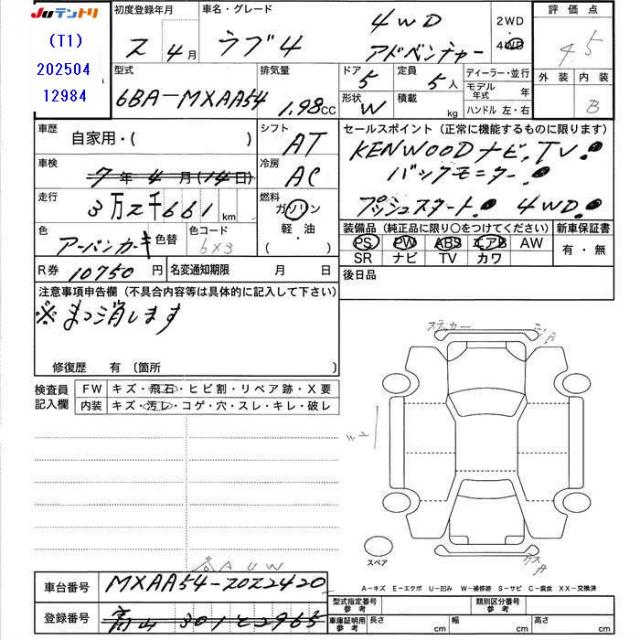 JUテントリ
(T1)
202504
12984
初度登録年月
2 4月
車名・グレード
ラブ4
4WD
アドベンチャー
2WD
4WD
評価点
4.5
外装 内装
B
型式
6BA-MXAA54
排気量
1.98cc
ドア
5
定員
5人
形状
W
積載
kg
ディーラー・並行
モデル年式 年
ハンドル 左・右
車歴
自家用・( )
シフト
AT
車検
7年4月(14日)
冷房
AC
走行
3万2千661km
燃料
ガソリン
軽・油
( )
色
アーバンカーキ
色替
色コード
6X3
R券
10750円
名変通知期限 月 日
セールスポイント(正常に機能するものに限ります)
KENWOODナビ、TV!
バックモニター!
プッシュスタート! 4WD!
装備品(純正品に限り○をつけてください)
PS PW ABS エアB AW
SR ナビ TV カワ
新車保証書
有・無
後日品
注意事項申告欄(不具合内容等は具体的に記入して下さい)
※まっ消します
修復歴 有〔箇所 〕
検査員
記入欄
FW キズ・飛石・ヒビ割・リペア跡・X要
内装 キズ・汚レ・コゲ・穴・スレ・キレ・破レ
ステッカー
スペア
AUW
A-キズ E-エクボ U-凹み W-補修跡 S-サビ C-腐食 XX-交換済
車台番号
MXAA54-2022420
登録番号
富山 301 そ 2965
型式指定番号
参考
類別区分番号
参考
車庫証明用
参考
長さ cm
幅 cm
高さ cm